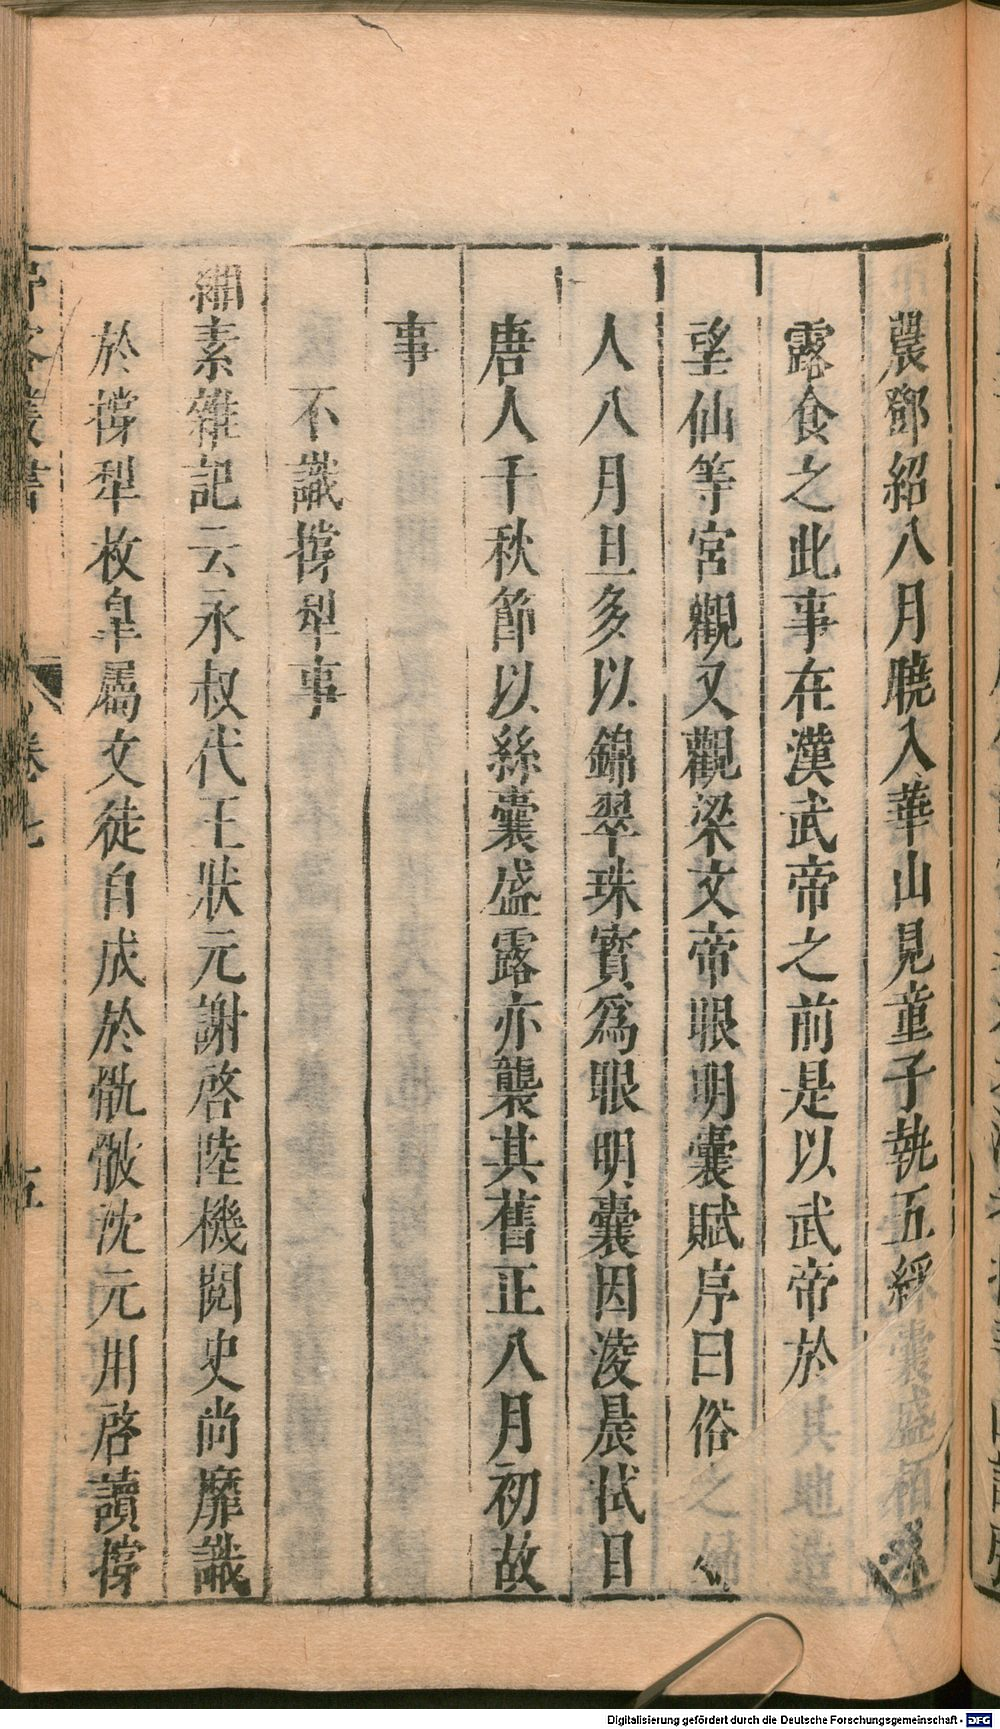 農鄧紹八月曉入華山見童子執五綵囊盛栢
露食之此事在漢武帝之前是以武帝於其地造
望仙等宮觀又觀梁文帝眼明囊賦序曰俗之
人八月旦多以錦翠珠寳爲眼明囊因淩晨拭目
唐人千秋節以絲囊盛露亦襲其舊正八月初故
事
不識撐犁事
緗素雜記云永叔代王狀元謝啓陸機閱史尚靡識
於撐犁枚皐屬文徒自成於骩骳沈元用啓讀撐
卷七
五
Digitalisierung gefördert durch die Deutsche Forschungsgemeinschaft - DFG